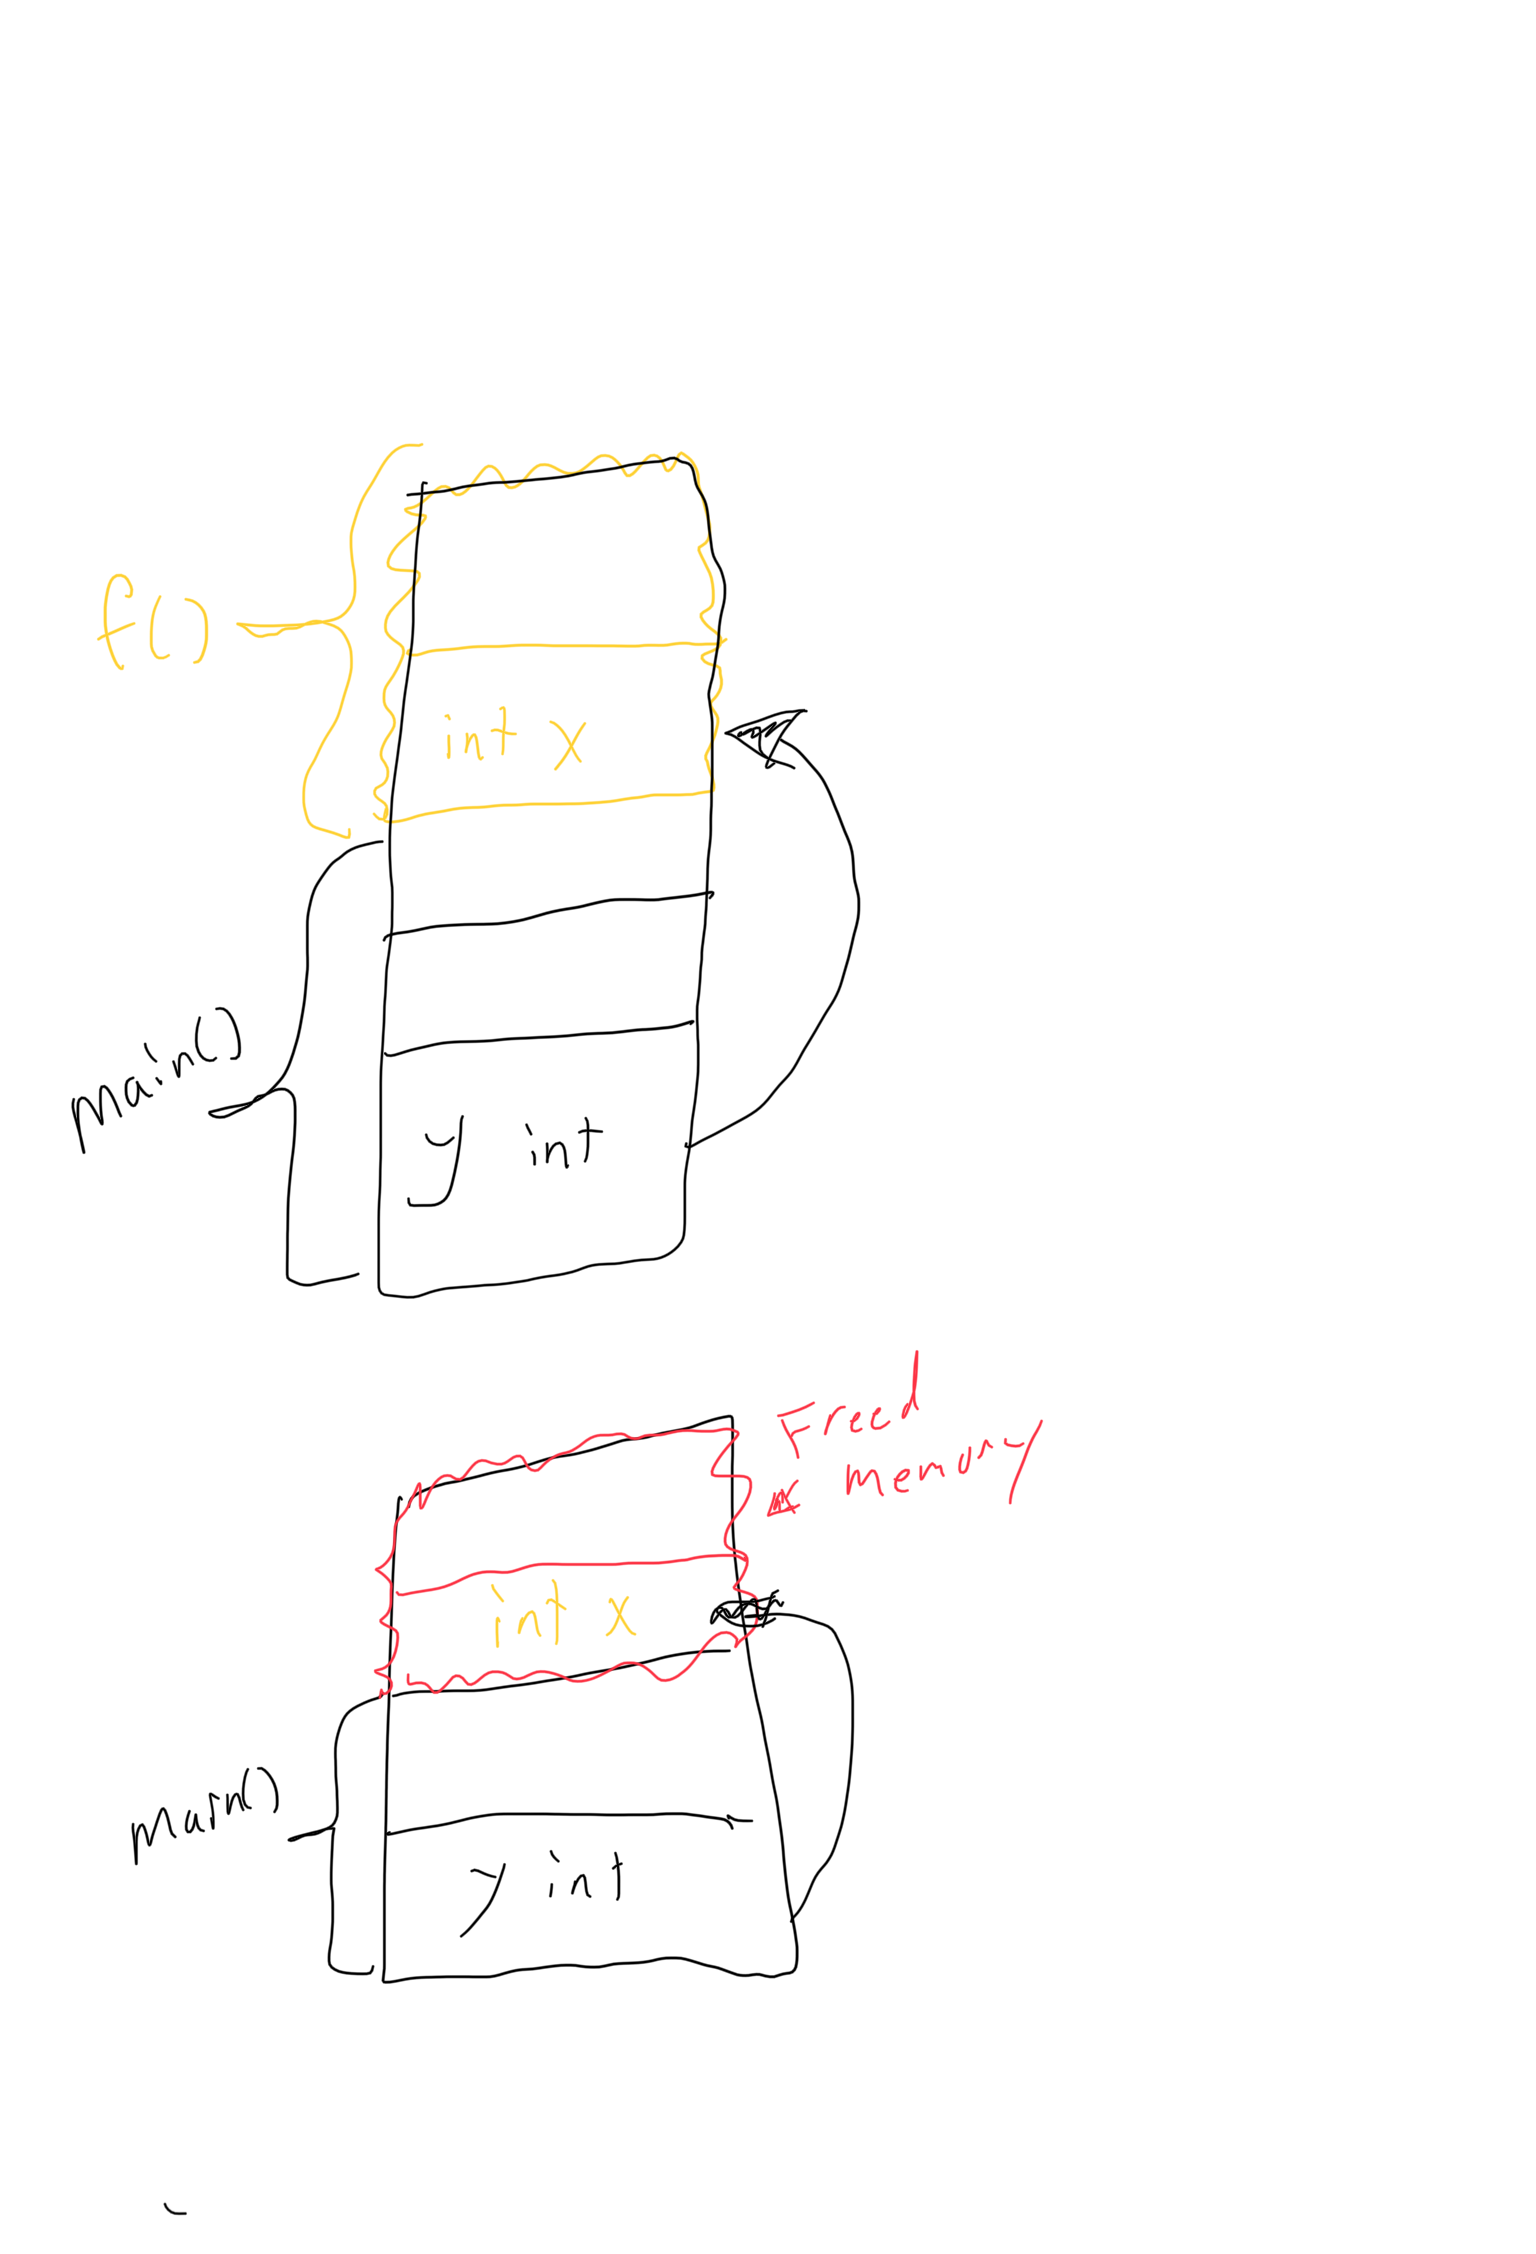 f()
int x
main()
y int
Freed
memory
int x
main()
y int